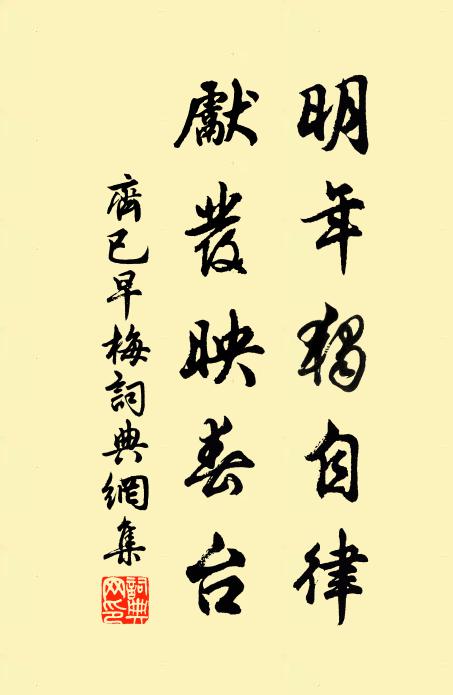 明年獨自律
獻發映春台
齊已早梅詞典網集
詞典網印